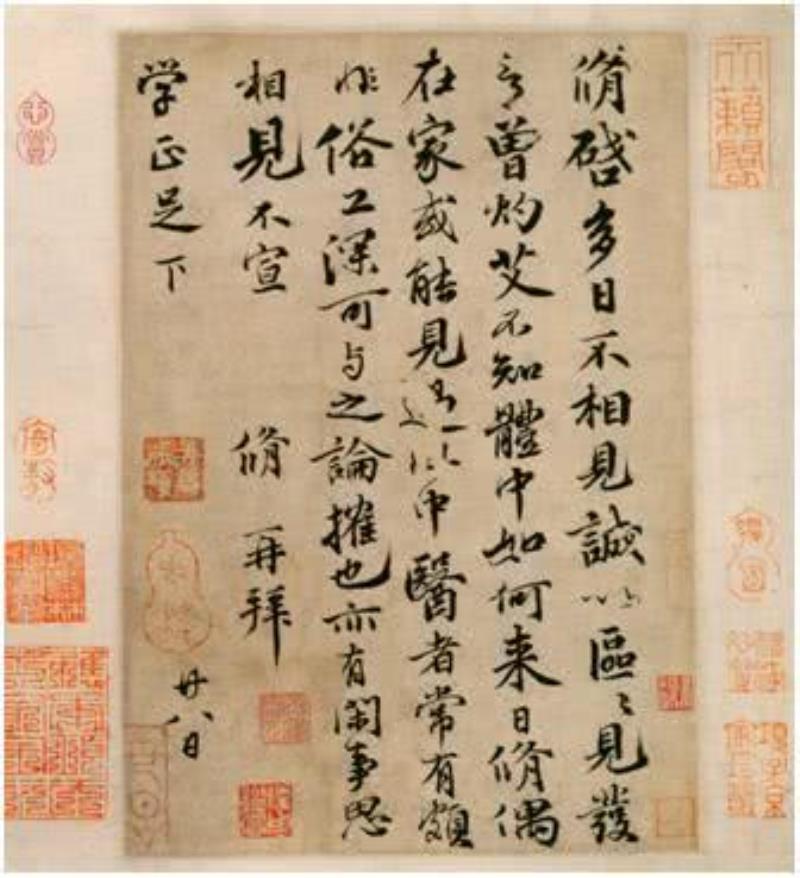 脩啓多日不相見誠以區々見發
言曾灼艾不知體中如何来日脩偶
在家或能見過此中醫者常有頗
非俗工深可与之論搉也亦有閑事思
相見不宣 脩再拜
学正足下 廿八日
天籟閣